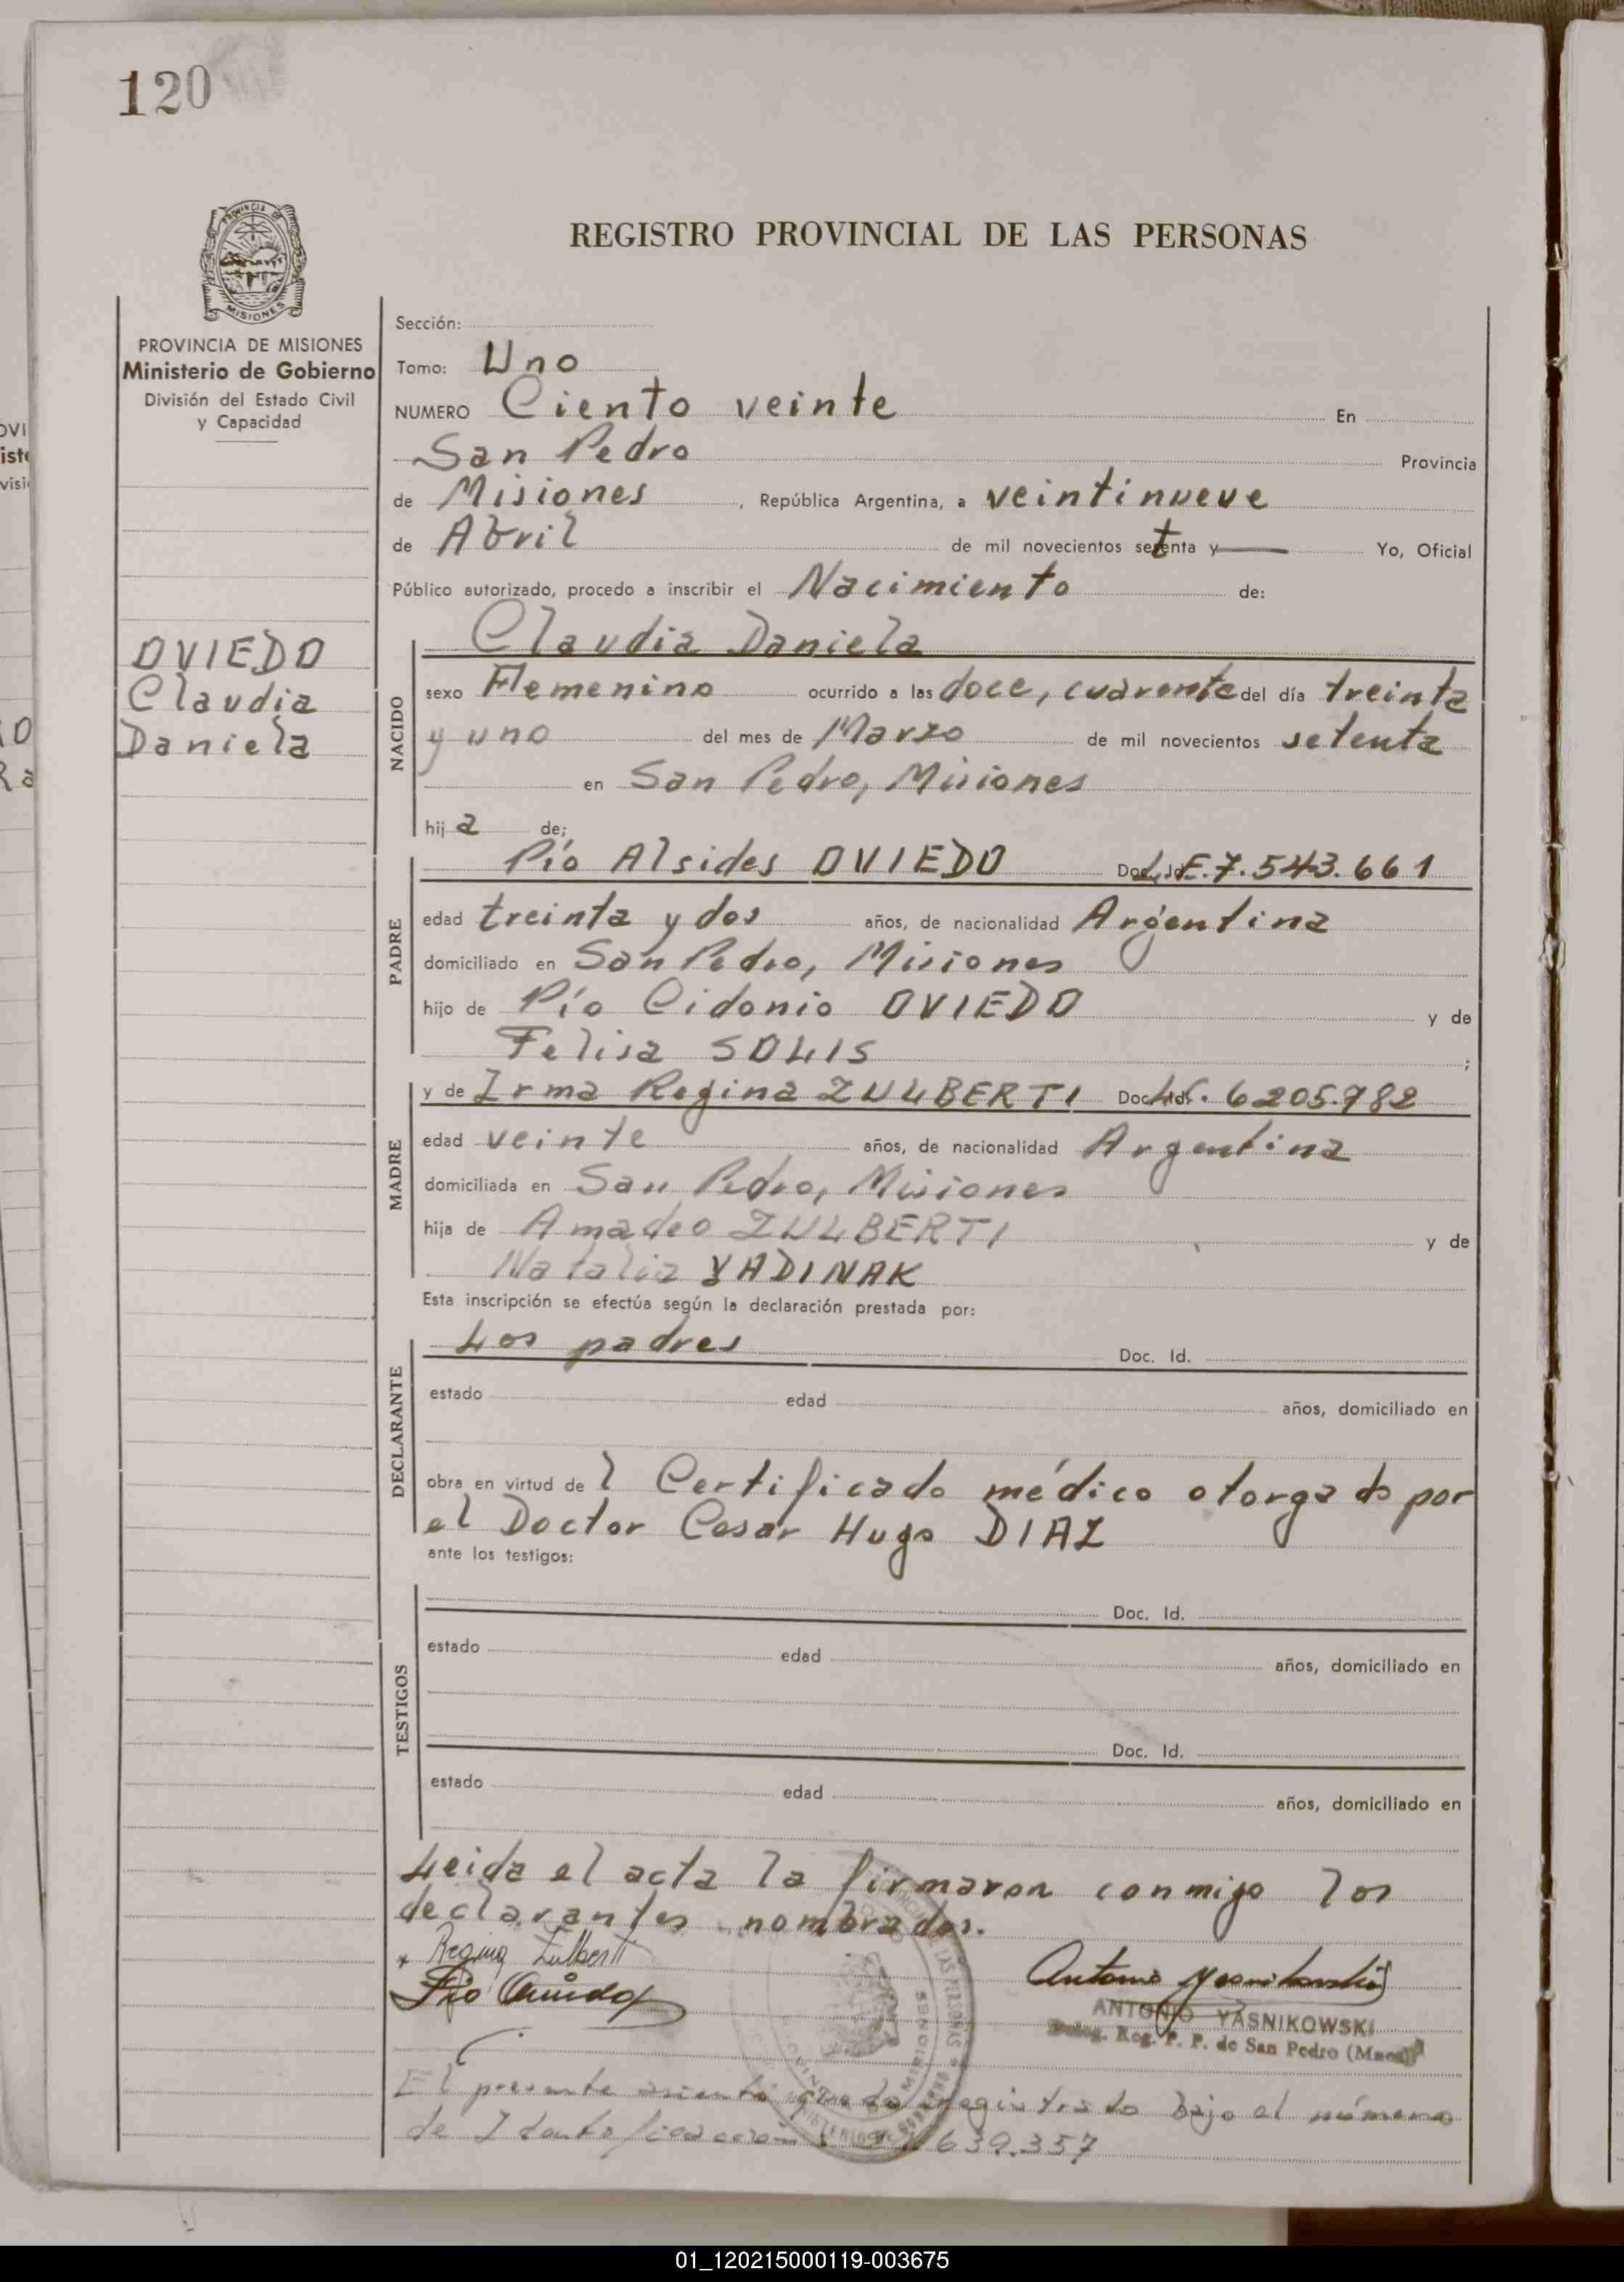 120
REGISTRO PROVINCIAL DE LAS PERSONAS
PROVINCIA DE
MISIONES
PROVINCIA DE MISIONES
Ministerio de Gobierno
División del Estado Civil
y Capacidad
OVIEDO
Claudia
Daniela
Sección:
Tomo: Uno
NUMERO Ciento veinte En
San Pedro Provincia
de Misiones, República Argentina, a veintinueve
de Abril de mil novecientos setenta y — Yo, Oficial
Público autorizado, procedo a inscribir el Nacimiento de:
NACIDO
Claudia Daniela
sexo Femenino ocurrido a las doce, cuarenta del día treinta
y uno del mes de Marzo de mil novecientos setenta
en San Pedro, Misiones
hija de;
PADRE
Pío Alsides OVIEDO Doc. Id. L.E. 7.543.661
edad treinta y dos años, de nacionalidad Argentina
domiciliado en San Pedro, Misiones
hijo de Pío Cidonio OVIEDO y de
Felisa SOLIS ;
MADRE
y de Irma Regina ZULBERTI Doc. Id. 6205.982
edad veinte años, de nacionalidad Argentina
domiciliada en San Pedro, Misiones
hija de Amadeo ZULBERTI y de
Natalia YADINAK
Esta inscripción se efectúa según la declaración prestada por:
DECLARANTE
Los padres Doc. Id.
estado edad años, domiciliado en
obra en virtud de l Certificado médico otorgado por
el Doctor Cesar Hugo DIAZ
ante los testigos:
TESTIGOS
Doc. Id.
estado edad años, domiciliado en
Doc. Id.
estado edad años, domiciliado en
Leida el acta la firmaron conmigo los
declarantes nombrados.
Regina Zulberti
Pío Oviedo
Antonio Yasnikowski
ANTONIO YASNIKOWSKI
Deleg. Reg. P. P. de San Pedro
El presente asiento queda registrado bajo el número
de 639.357
01_120215000119-003675